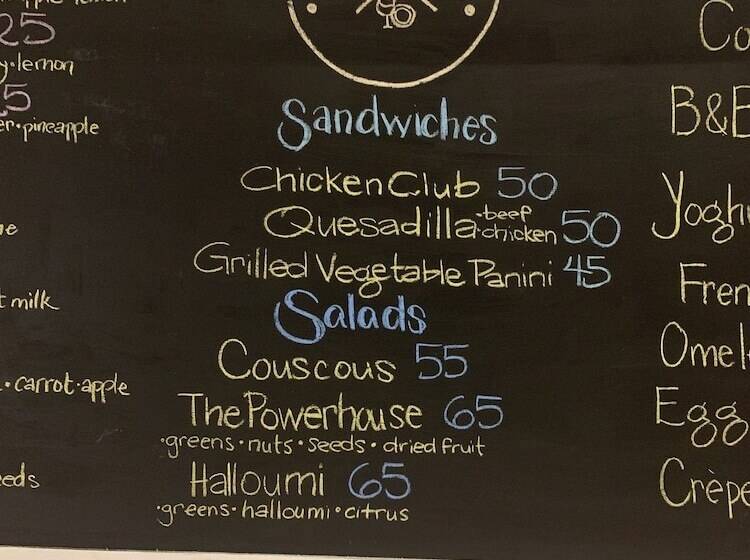 25
lemon
5
pineapple
milk
carrot·apple
Sandwiches
Chicken Club 50
Quesadilla ·beef ·chicken 50
Grilled Vegetable Panini 45
Salads
Couscous 55
The Powerhouse 65
·greens·nuts·seeds·dried fruit
Halloumi 65
·greens·halloumi·citrus
B&B
Egg